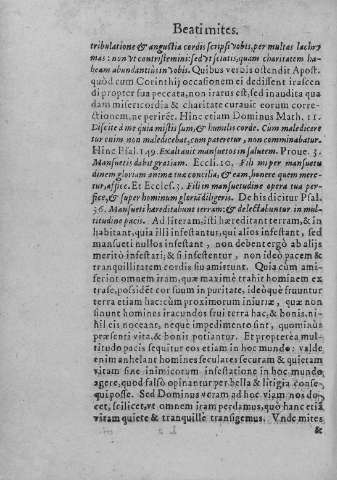 Beati mites.
tribulatione & angustia cordis scripsi vobis, per multas lachry
mas: non vt contristemini: sed vt sciatis, quam charitatem ha-
beam abundantius in vobis. Quibus verbis ostendit Apost.
quòd cum Corinthij occasionem ei dedissent irascen
di propter sua peccata, non iratus est, sed inaudita qua
dam misericordia & charitate curauit eorum corre-
ctionem, ne perirẽt. Hinc etiam Dominus Math. 11.
Discite à me quia mitis sum, & humilis corde. Cum malediceretur
tur enim non maledicebat, cum pateretur, non comminabatur.
Hinc Psal. 149. Exaltauit mansuetos in salutem. Prouer. 3.
Mansuetis dabit gratiam. Eccli. 10. Fili mi per mansuetu
dinem gloriam anima tua concilia, & eam, honere quem mere-
tur, aspice. Et Eccles. 3. Fili in mansuetudine opera tua per-
fice, & super hominum gloriã diligeris. De his dicitur Psal.
36. Mansueti hæreditabunt terram: & delectabuntur in mul-
titudine pacis. Ad literam, isti hæreditant terram, & in
habitant, quia illi infestantur, qui alios infestant, sed
mansueti nullos infestant, non debent ergò ab alijs
meritò infestari; & si infestentur, non ideò pacem &
tranquillitatem cordis sui amittunt. Quia cùm ami-
serint omnem iram, quæ maximè trahit hominem ex
tra se, possidẽt cor suum in puritate, ideòque fruuntur
terra etiam hac: cùm proximorum iniuriæ, quæ non
sinunt homines iracundos frui terra hac, & bonis, ni-
hil eis noceant, neque impedimento sint, quominùs
præsenti vita, & bonis potiantur. Et propterea mul-
titudo pacis sequitur eos etiam in hoc mundo: valde
enim anhelant homines seculares securam & quietam
vitam sine inimicorum infestatione in hoc mundo
agere, quod falsò opinantur per bella & litigia conse-
qui posse. Sed Dominus veram ad hoc viam nos do-
cet, scilicet, vt omnem iram perdamus, quò hanc etiã
vitam quiete & tranquille transigemus. Vnde mites
&